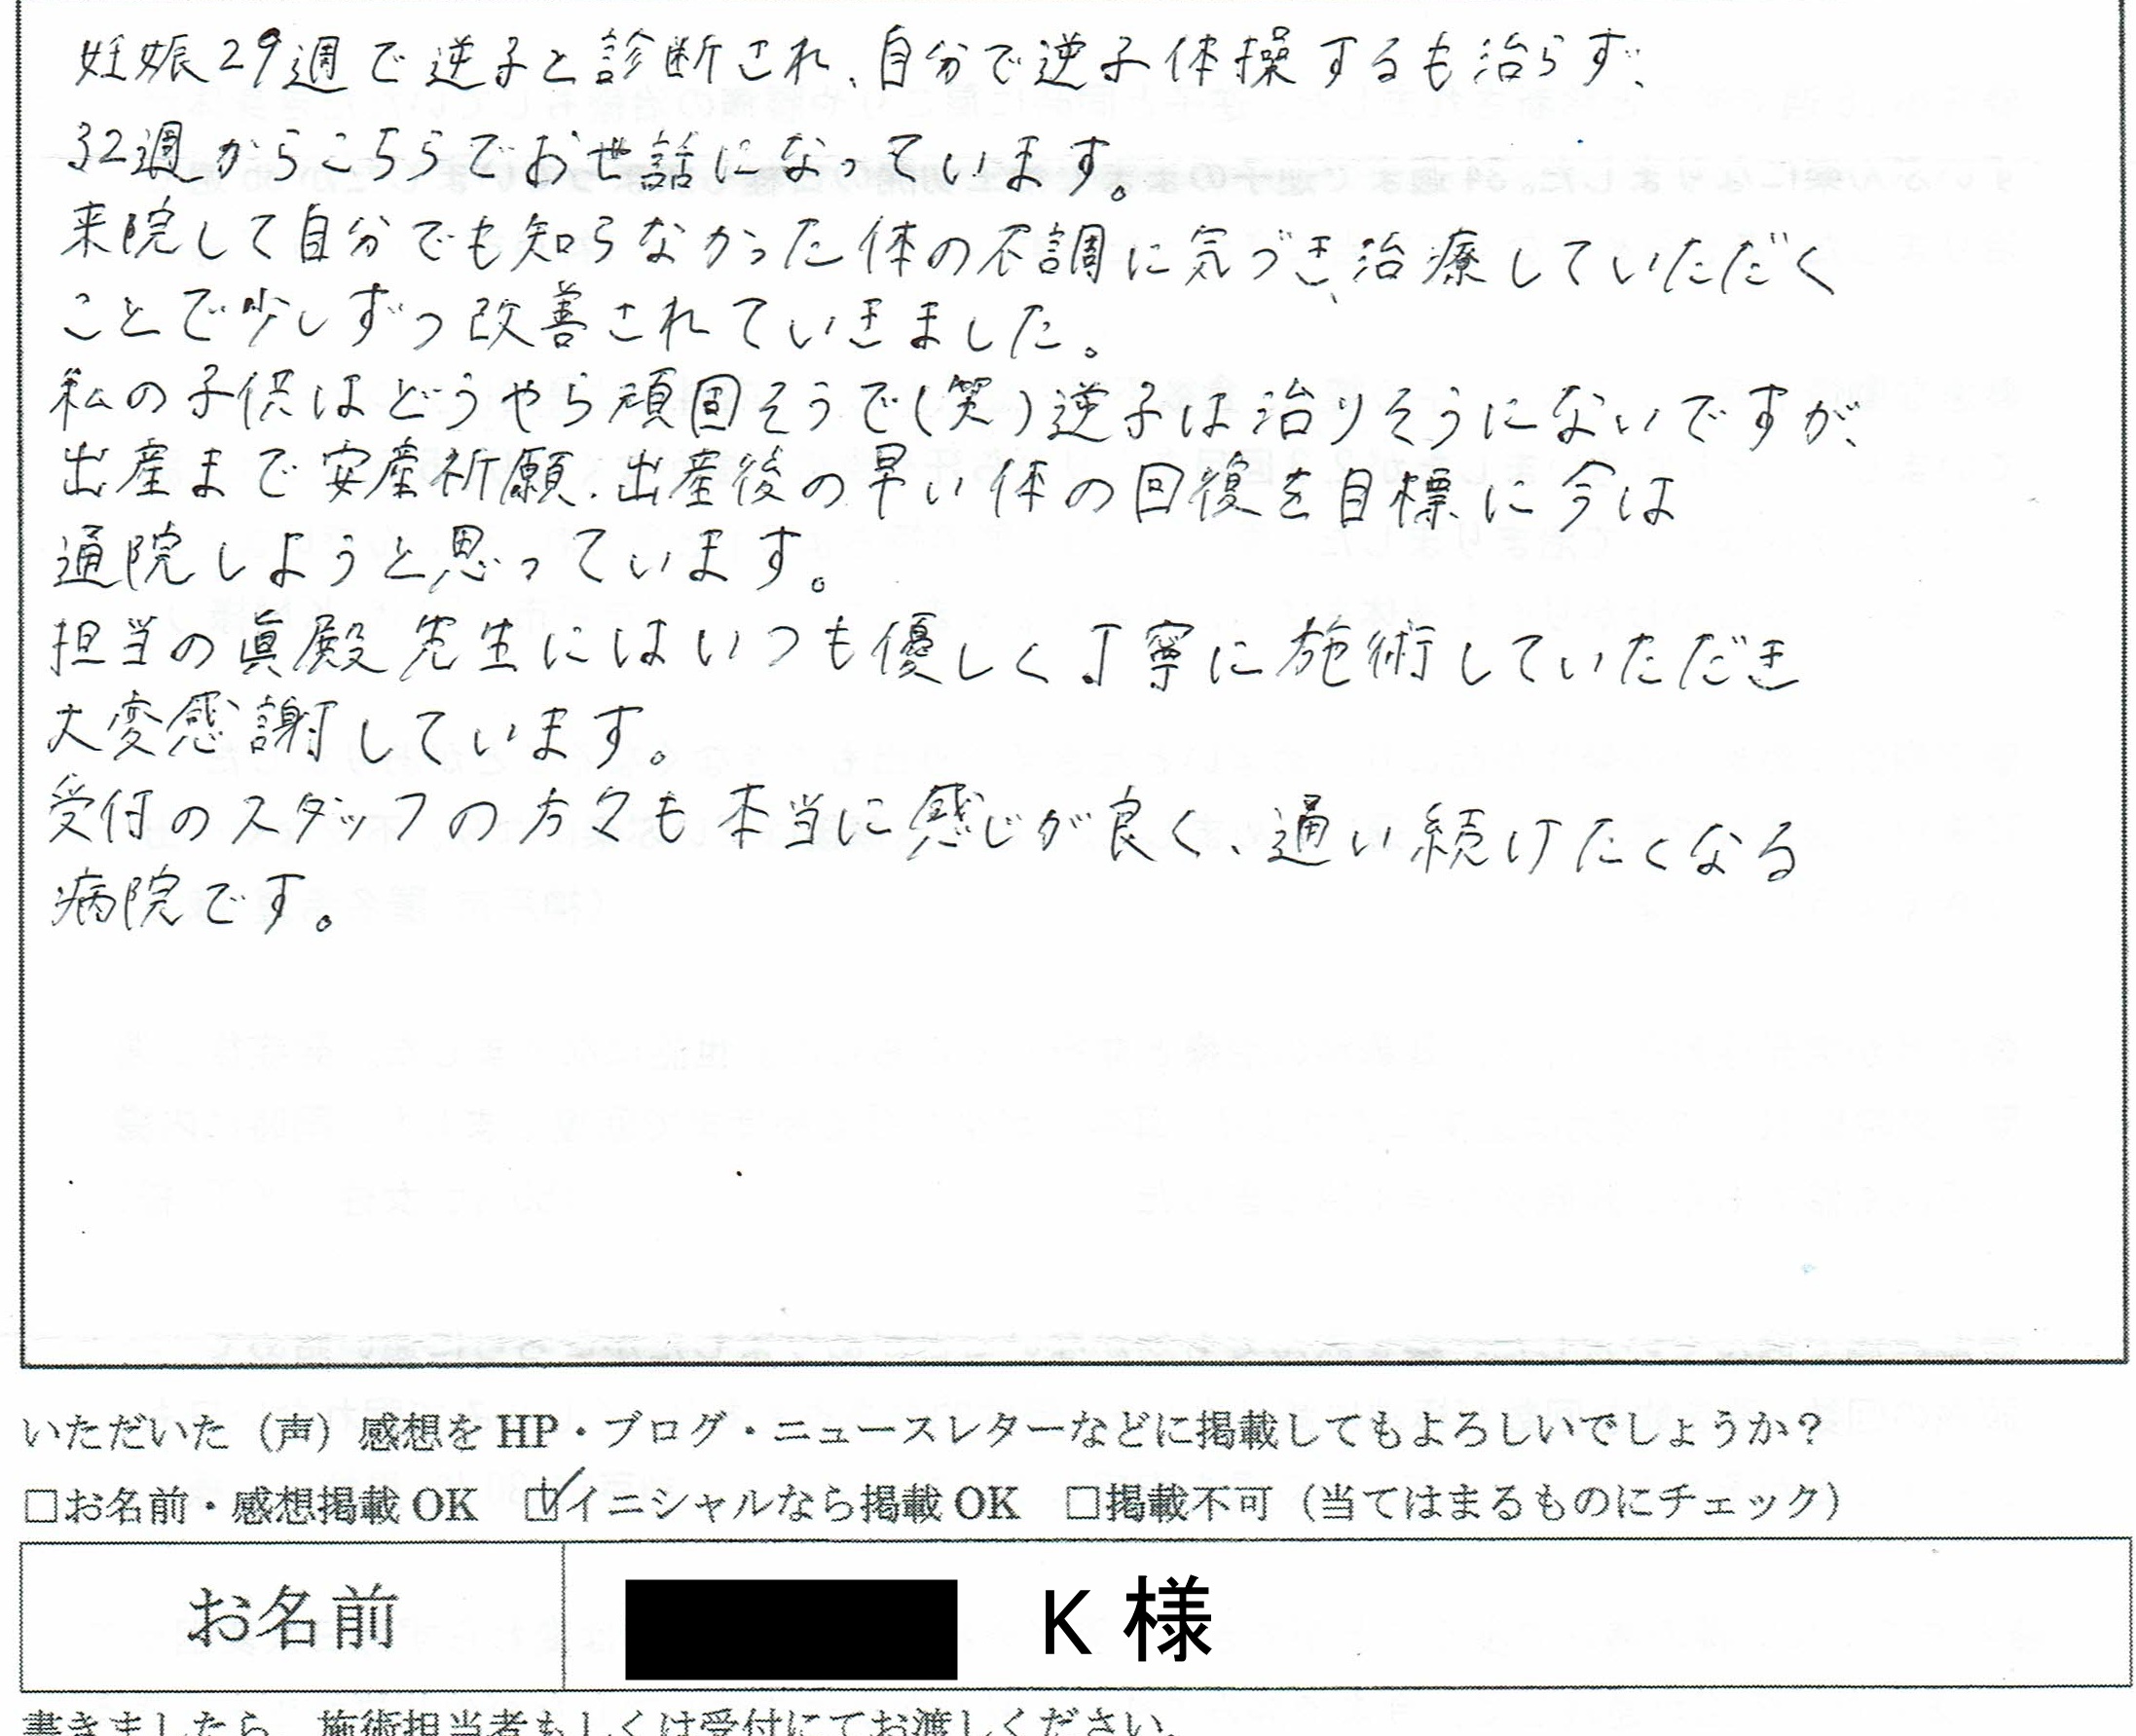 妊娠29週で逆子と診断され、自分で逆子体操するも治らず、
32週からこちらでお世話になっています。
来院して自分でも知らなかった体の不調に気づき、治療していただく
ことで少しずつ改善されていきました。
私の子供はどうやら頑固そうで(笑)逆子は治りそうにないですが、
出産まで安産祈願、出産後の早い体の回復を目標に今は
通院しようと思っています。
担当の眞殿先生にはいつも優しく丁寧に施術していただき
大変感謝しています。
受付のスタッフの方々も本当に感じが良く、通い続けたくなる
病院です。
いただいた（声）感想を HP・ブログ・ニュースレターなどに掲載してもよろしいでしょうか？
□お名前・感想掲載 OK ☑イニシャルなら掲載 OK □掲載不可（当てはまるものにチェック）
お名前 K 様
書きましたら、施術担当者もしくは受付にてお渡しください。